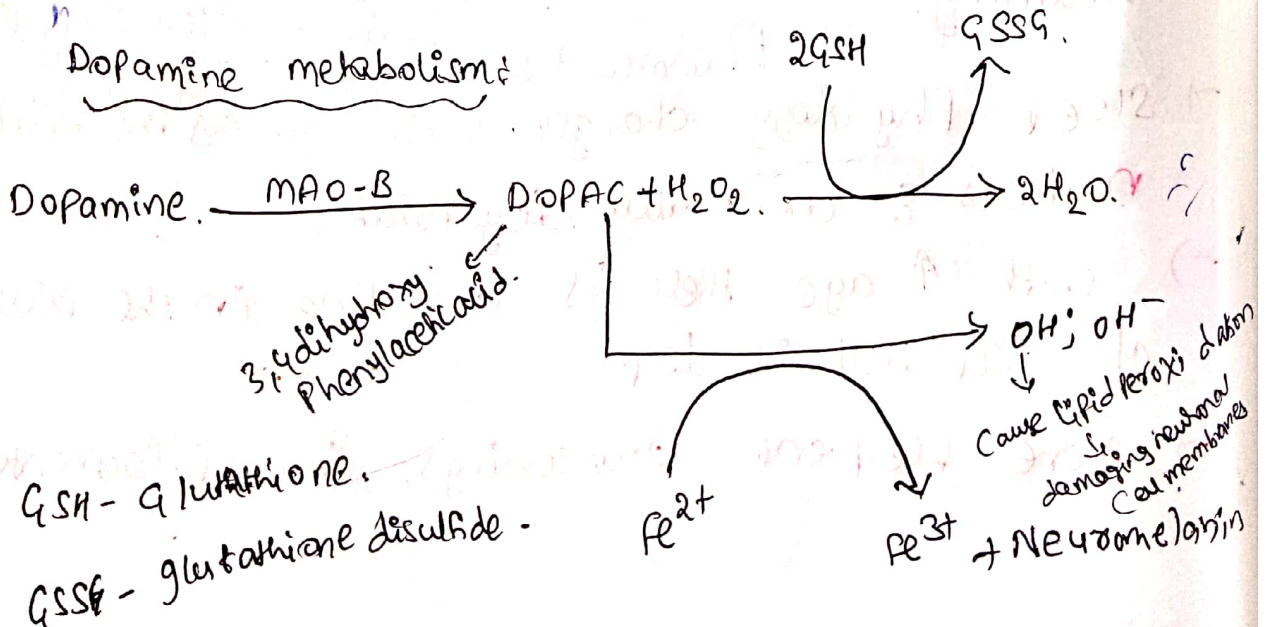 Dopamine metabolism:
2GSH
GSSG.
Dopamine. MAO-B DOPAC + H2O2. 2H2O.
3,4dihydroxy
phenylacetic acid.
OH; OH⁻
Cause lipid peroxidation
damaging neuronal
Cell membranes
Fe2+
Fe3+ + Neuromelanin
GSH - Glutathione.
GSSG - glutathione disulfide.